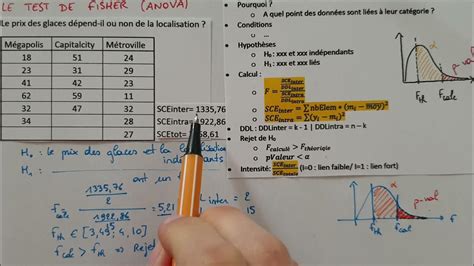 LE TEST DE FISHER (ANOVA)
Le prix des glaces dépend-il ou non de la localisation ?
Mégapolis Capitalcity Métroville
18 51 24
23 31 29
41 42 23
62 11 61
32 47 32
34 28
27
SCEinter= 1335,76
SCEintra= 1922,86
SCEtot= 58,61
H₀ : le prix des glaces et la localisation
indépendants
H₁ :
ont un
f calc = 1335,76 / 2 / 1922,86 / 15 = 5,21
inter = 2
15
f th ∈ [3,49; 4,10]
f calc > f th => Rejet
• Pourquoi ?
o A quel point des données sont liées à leur catégorie ?
• Conditions
o ...
• Hypothèses
o H₀ : xxx et xxx indépendants
o H₁ : xxx et xxx liés
• Calcul :
o F = SCEinter / DDLinter / SCEintra / DDLintra
o SCEinter = ∑ nbElem * (mᵢ − moyy)²
o SCEintra = ∑(yᵢ − mᵢ)²
o DDL : DDLinter = k – 1 | DDLintra = n – k
• Rejet de H₀
o Fcalculé > Fthéorique
o pValeur < α
• Intensité: (I=0 : lien faible/ I=1 : lien fort)
α
p-val
f th
f calc
α
p-val
f th
f calc